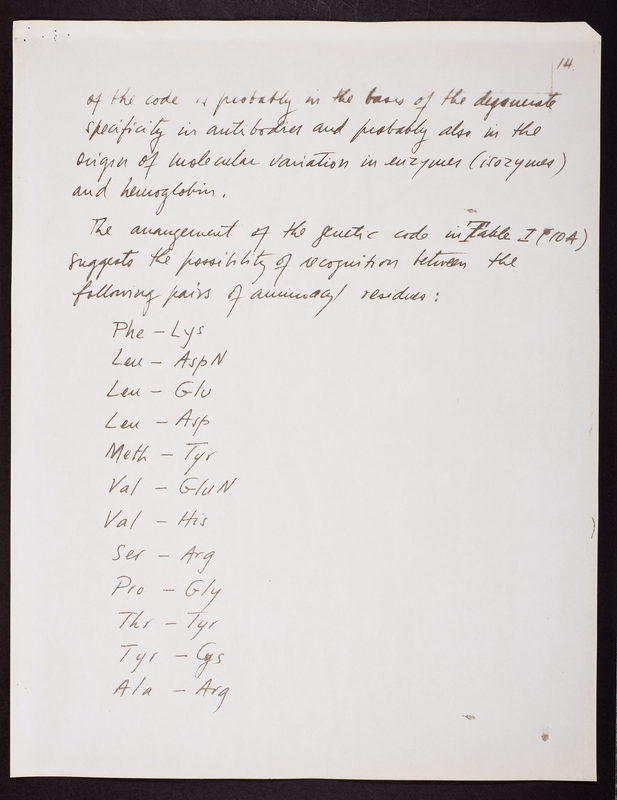 14.
of the code is probably in the basis of the degenerate
specificity in antibodies and probably also in the
origin of molecular variation in enzymes (isozymes)
and hemoglobin.
The arrangement of the genetic code in Table I (P10A)
suggests the possibility of recognition between the
following pairs of aminoacyl residues:
Phe - Lys
Leu - AspN
Leu - Glu
Leu - Asp
Meth - Tyr
Val - GluN
Val - His
Ser - Arg
Pro - Gly
Thr - Tyr
Tyr - Cys
Ala - Arg